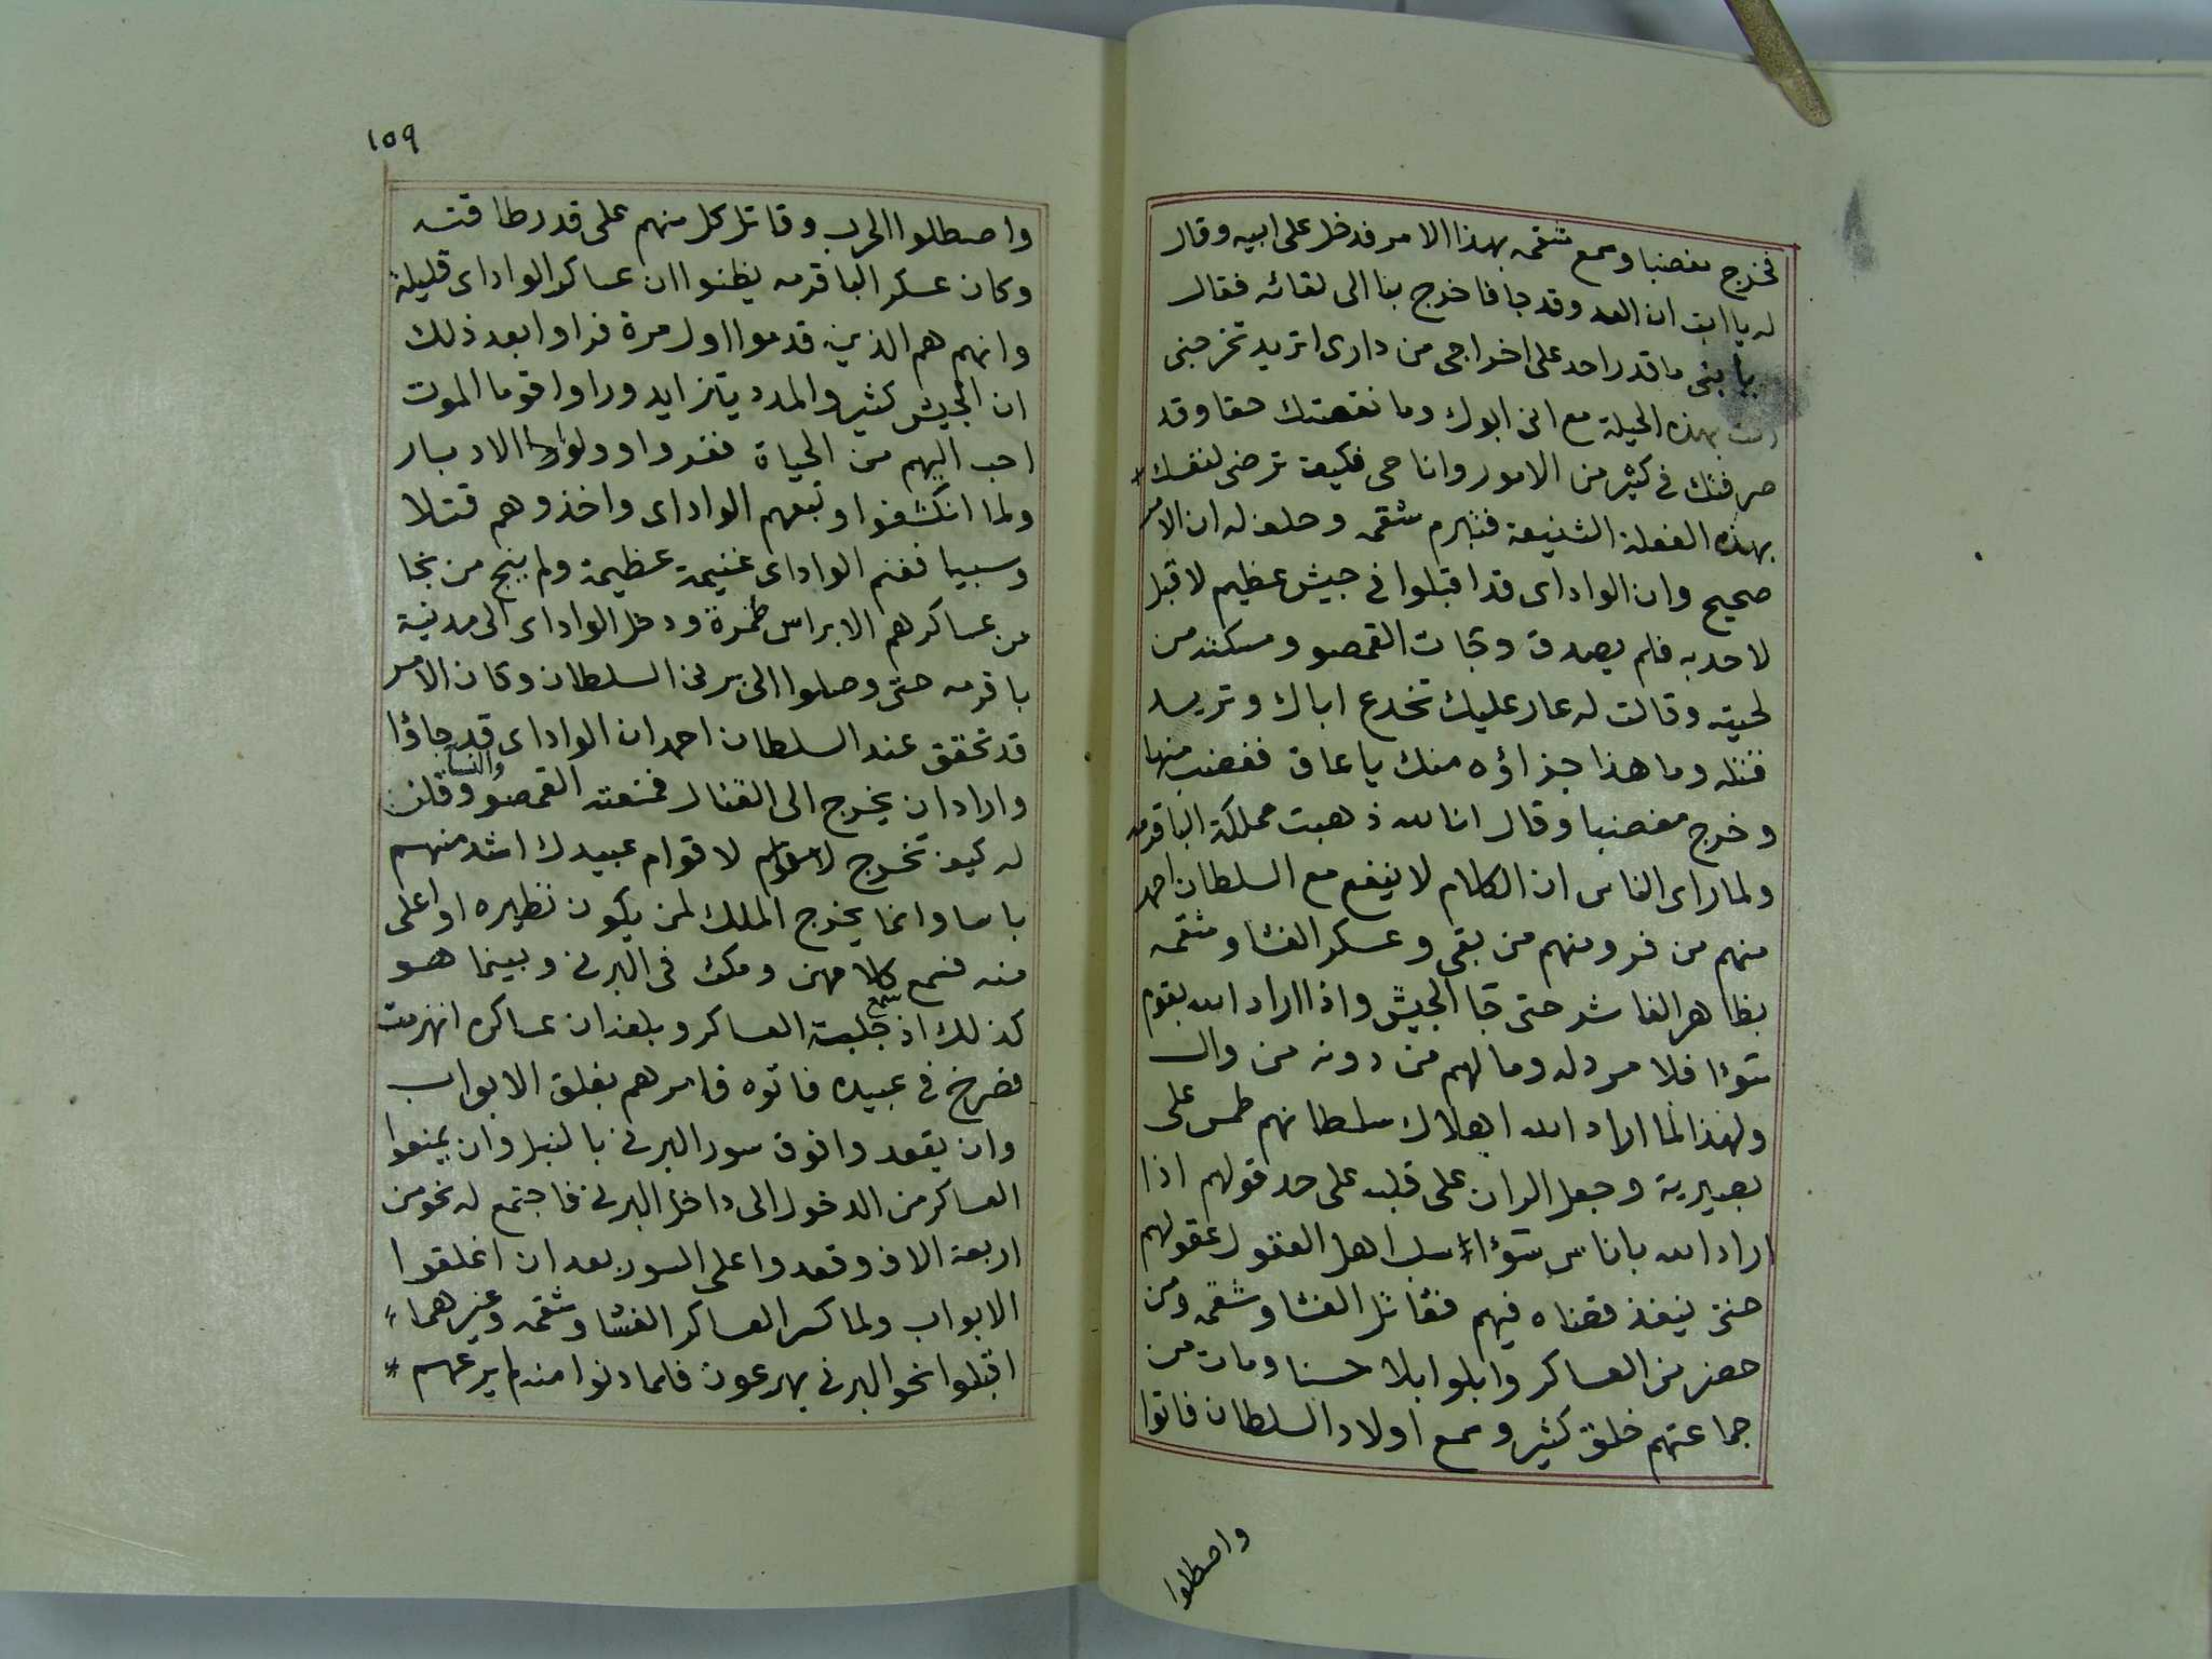 فخرج مغضبا وسمع شقمه بهذا الامر فدخل على ابيه وقال
له يا ابت ان العدو قد جا فاخرج بنا الى لقائه فقال
يا بنى ما قدر احد على اخراجى من دارى اتريد تخرجنى
انت بهذه الحيلة مع انى ابوك وما نقصتك حقا وقد
صرفتك فى كثير من الامور وانا حى فكيف ترضى لنفسك
بهذه الفعلة الشنيعة فتبرم شقمه وحلف له ان الامر
صحيح وان الواداى قد اقبلوا فى جيش عظيم لا قبل
لاحد به فلم يصدق وجات القمصو ومسكته من
لحيته وقالت له عار عليك تخدع اباك وتريد
قتله وما هذا جزاؤه منك يا عاق فغضب منها
وخرج مغضبا وقال انا لله ذهبت مملكة الباقرمه
ولما راى الناس ان الكلام لا ينفع مع السلطان احمد
منهم من فر ومنهم من بقى وعسكر الفتشا وشقمه
بظاهر الفاشر حتى جا الجيش واذا اراد الله بقوم
سوءا فلا مرد له وما لهم من دونه من وال
ولهذا لما اراد الله اهلاك سلطانهم طمس على
بصيرته وجعل الران على قلبه على حد قولهم اذا
اراد الله باناس سوءا سلب اهل العقول عقولهم
حتى ينفذ قضاه فيهم فقاتل الفتشا وشقمه ومن
حضر من العساكر وابلوا بلا حسنا ومات من
جماعتهم خلق كثير وسمع اولاد السلطان فاتوا
واصطلوا
١٥٩
واصطلوا الحرب وقاتل كل منهم على قدر طاقته
وكان عسكر الباقرمه يظنوا ان عساكر الواداى قليلة
وانهم هم الذين قدموا اول مرة فراوا بعد ذلك
ان الجيش كثير والمدد يتزايد وراوا قوما الموت
احب اليهم من الحياة ففروا وولوا الادبار
ولما انكشفوا وتبعهم الواداى واخذوهم قتلا
وسبيا فغنم الواداى غنيمة عظيمة ولم ينج من نجا
من عساكرهم الا براس طمرة ودخل الواداى الى مدينة
باقرمه حتى وصلوا الى برنى السلطان وكان الامر
قد تحقق عند السلطان احمد ان الواداى قد جاؤا
واراد ان يخرج الى القتال فمنعته القمصو والنسا وقلن
له كيف تخرج لاقوام عبيدك اشد منهم
باسا وانما يخرج الملك لمن يكون نظيره او اعلى
منه فسمع كلامهن ومكث فى البرنى وبينما هو
كذلك اذ سمع جلبة العساكر وبلغه ان عساكره انهزمت
فصرخ فى عبيده فاتوه فامرهم بغلق الابواب
وان يقعدوا فوق سور البرنى بالنبل وان يمنعوا
العساكر من الدخول الى داخل البرنى فاجتمع له نحو من
اربعة الاف وقعدوا على السور بعد ان اغلقوا
الابواب ولما كسر العساكر الفتشا وشقمه وغيرهما
اقبلوا نحو البرنى يهرعون فلما دنوا منه لم يرعهم